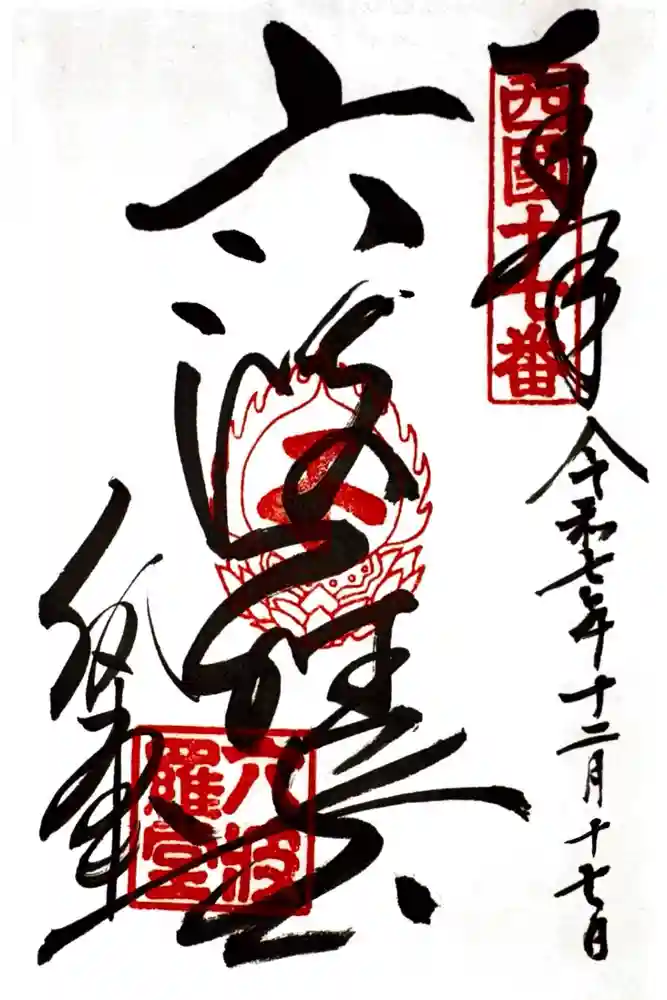 奉拝
西國十七番
令和七年十二月十七日
六波羅堂
六波
羅堂